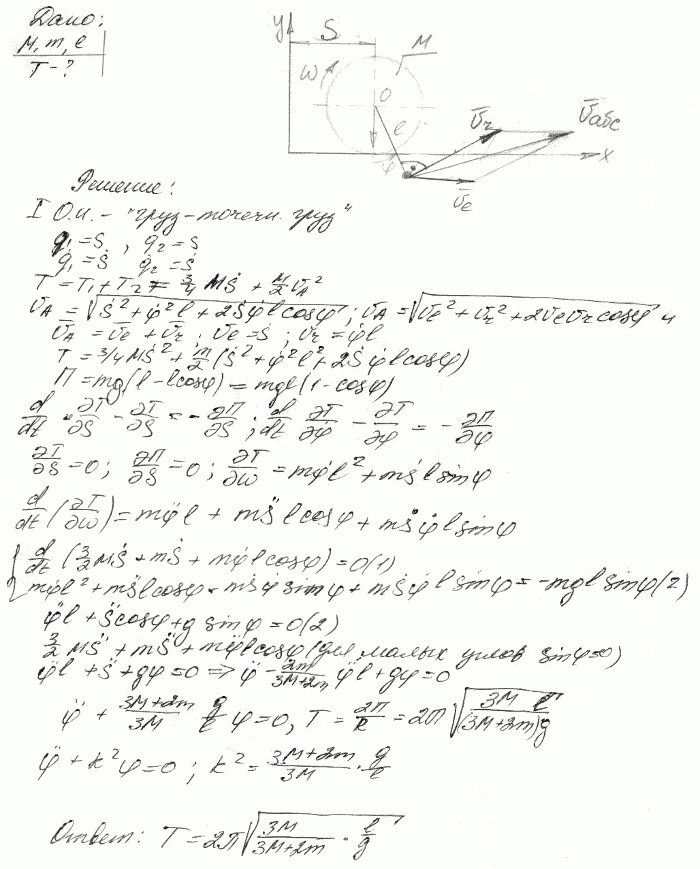 Дано:
M, m, l
T - ?
y
S
M
ω
O
l
φ
V̄r
V̄абс
V̄e
x
Решение:
I О.и. - "груз-точечн. груз"
q₁ = S, q₂ = S
q̇₁ = Ṡ q̇₂ = Ṡ
T = T₁ + T₂ = 3/4 MṠ + M/2 V_A²
V_A = √(Ṡ² + φ̇²l + 2Ṡφ̇l cosφ); V_A = √(Ve² + Vr² + 2VeVr cosφ) и
V̄_A = V̄e + V̄r; Ve = Ṡ; Vr = φ̇l
T = 3/4 MṠ² + m/2 (Ṡ² + φ̇²l² + 2Ṡφ̇l cosφ)
П = mg(l - l cosφ) = mgl(1 - cosφ)
d/dt · ∂T/∂Ṡ - ∂T/∂S = - ∂П/∂S; d/dt ∂T/∂φ̇ - ∂T/∂φ = - ∂П/∂φ
∂T/∂S = 0; ∂П/∂S = 0; ∂T/∂ω = mφ̇l² + mṡl sinφ
d/dt (∂T/∂ω) = mφ̈l + mS̈l cosφ + mṠφ̇l sinφ
{ d/dt (3/2 MṠ + mṠ + mφ̇l cosφ) = 0 (1)
mφ̈l² + mS̈l cosφ - mṡφ̇ sinφ + mṠφ̇l sinφ = -mgl sinφ (2)
φ̈l + S̈cosφ + g sinφ = 0 (2)
3/2 MS̈ + mS̈ + mφ̈l cosφ (для малых углов sinφ=0)
φ̈l + S̈ + gφ = 0 => φ̈ - 2m/(3M+2m) φ̈l + gφ = 0
φ̈ + (3M+2m)/3M g/l φ = 0, T = 2π/k = 2π√(3M l/(3M+2m)g)
φ̈ + k²φ = 0; k² = (3M+2m)/3M · g/l
Ответ: T = 2π√(3M/(3M+2m) · l/g)